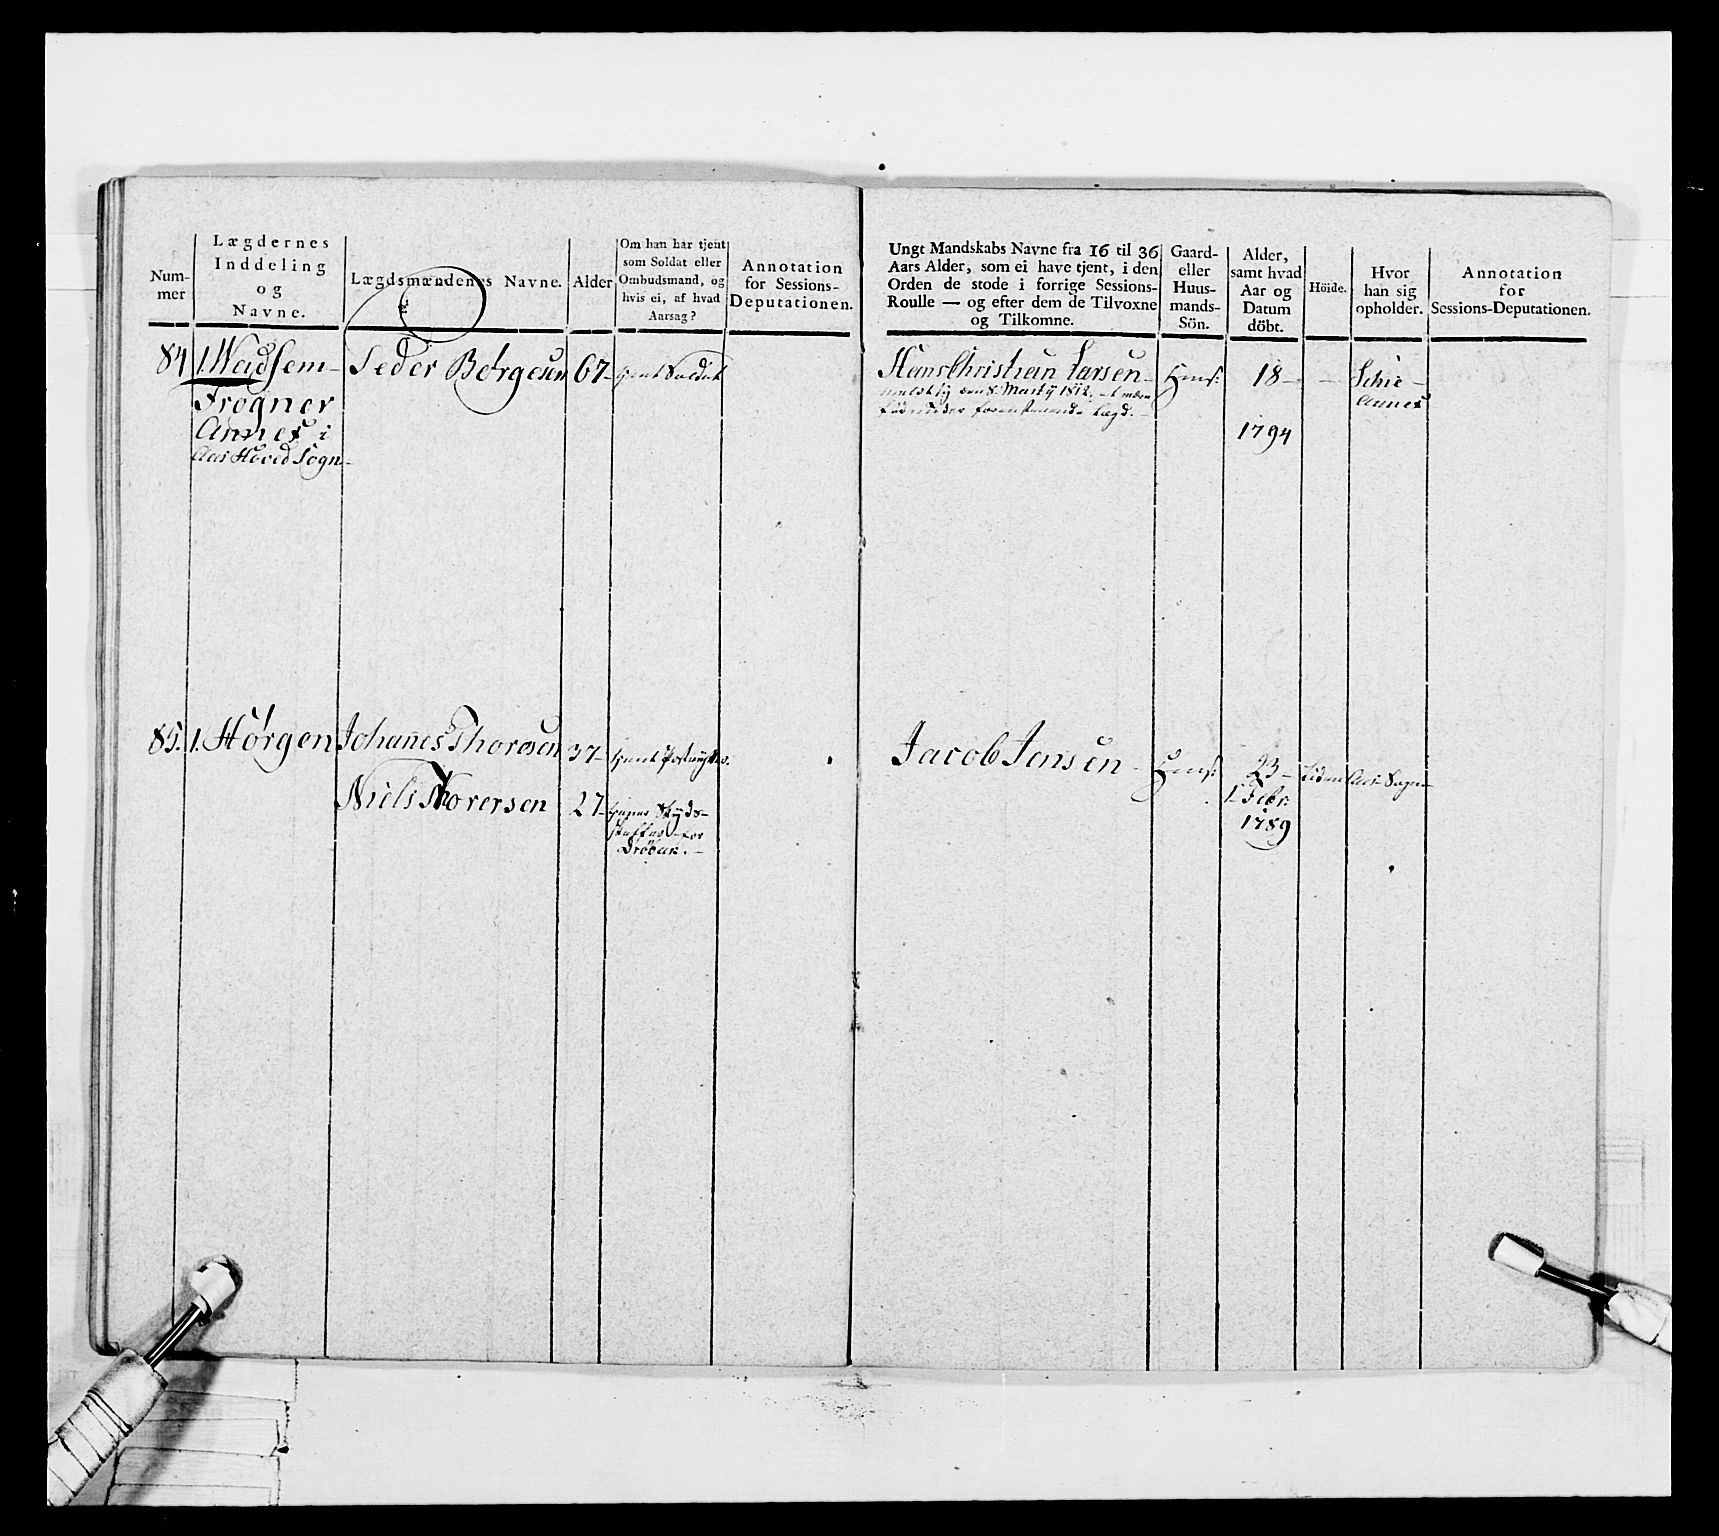 Num-
mer
Lægdernes
Inddeling
og
Navne.
Lægdsmændenes Navne.
Alder
Om han har tjent
som Soldat eller
Ombudsmand, og
hvis ei, af hvad
Aarsag?
Annotation
for Sessions-
Deputationen.
84
1. Weidsem-
Frogner
Annex i
Aas Hoved Sogn-
Peder Børgesen
67-
tjent Soldat
85.
1. Hørgen
Johanes Thoresen
37-
tjent
Niels Thoresen
27-
Skyds-
skaffer for
Drøbak.-
Ungt Mandskabs Navne fra 16 til 36
Aars Alder, som ei have tjent, i den
Orden de stode i forrige Sessions-
Roulle — og efter dem de Tilvoxne
og Tilkomne.
Gaard-
eller
Huus-
mands-
Sön.
Alder,
samt hvad
Aar og
Datum
döbt.
Höide.
Hvor
han sig
opholder.
Annotation
for
Sessions-Deputationen.
Hans Christian Larsen-
den 8 Martÿ 1812,
foranstaaende Lægd.-
Huus:
18-
1794
-
Schie-
Annex
Jacob Jensen-
Huus:
23-
1 Febr:
1789
Liden
Aas Sogn-